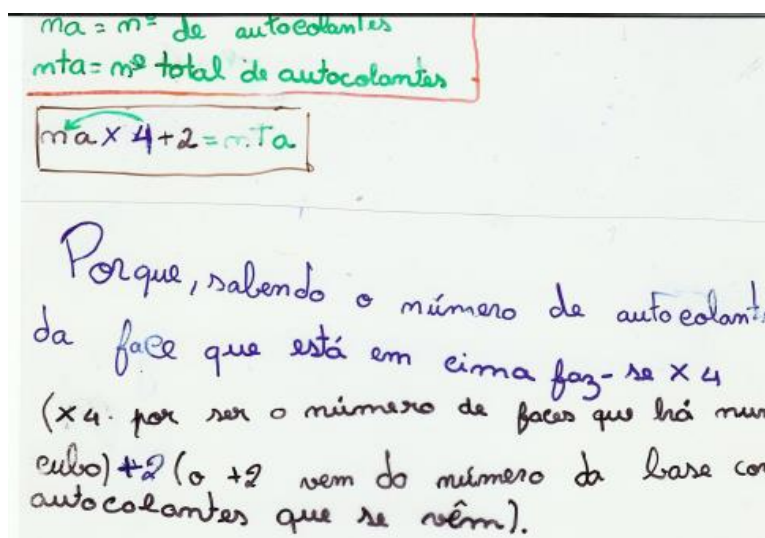 na = nº de autocolantes
nta = nº total de autocolantes
na x 4 + 2 = nTa
Porque, sabendo o número de autocolant
da face que está em cima faz-se x 4
(x4. por ser o número de faces que há num
cubo) +2 (o +2 vem do número da base com
autocolantes que se vêm).